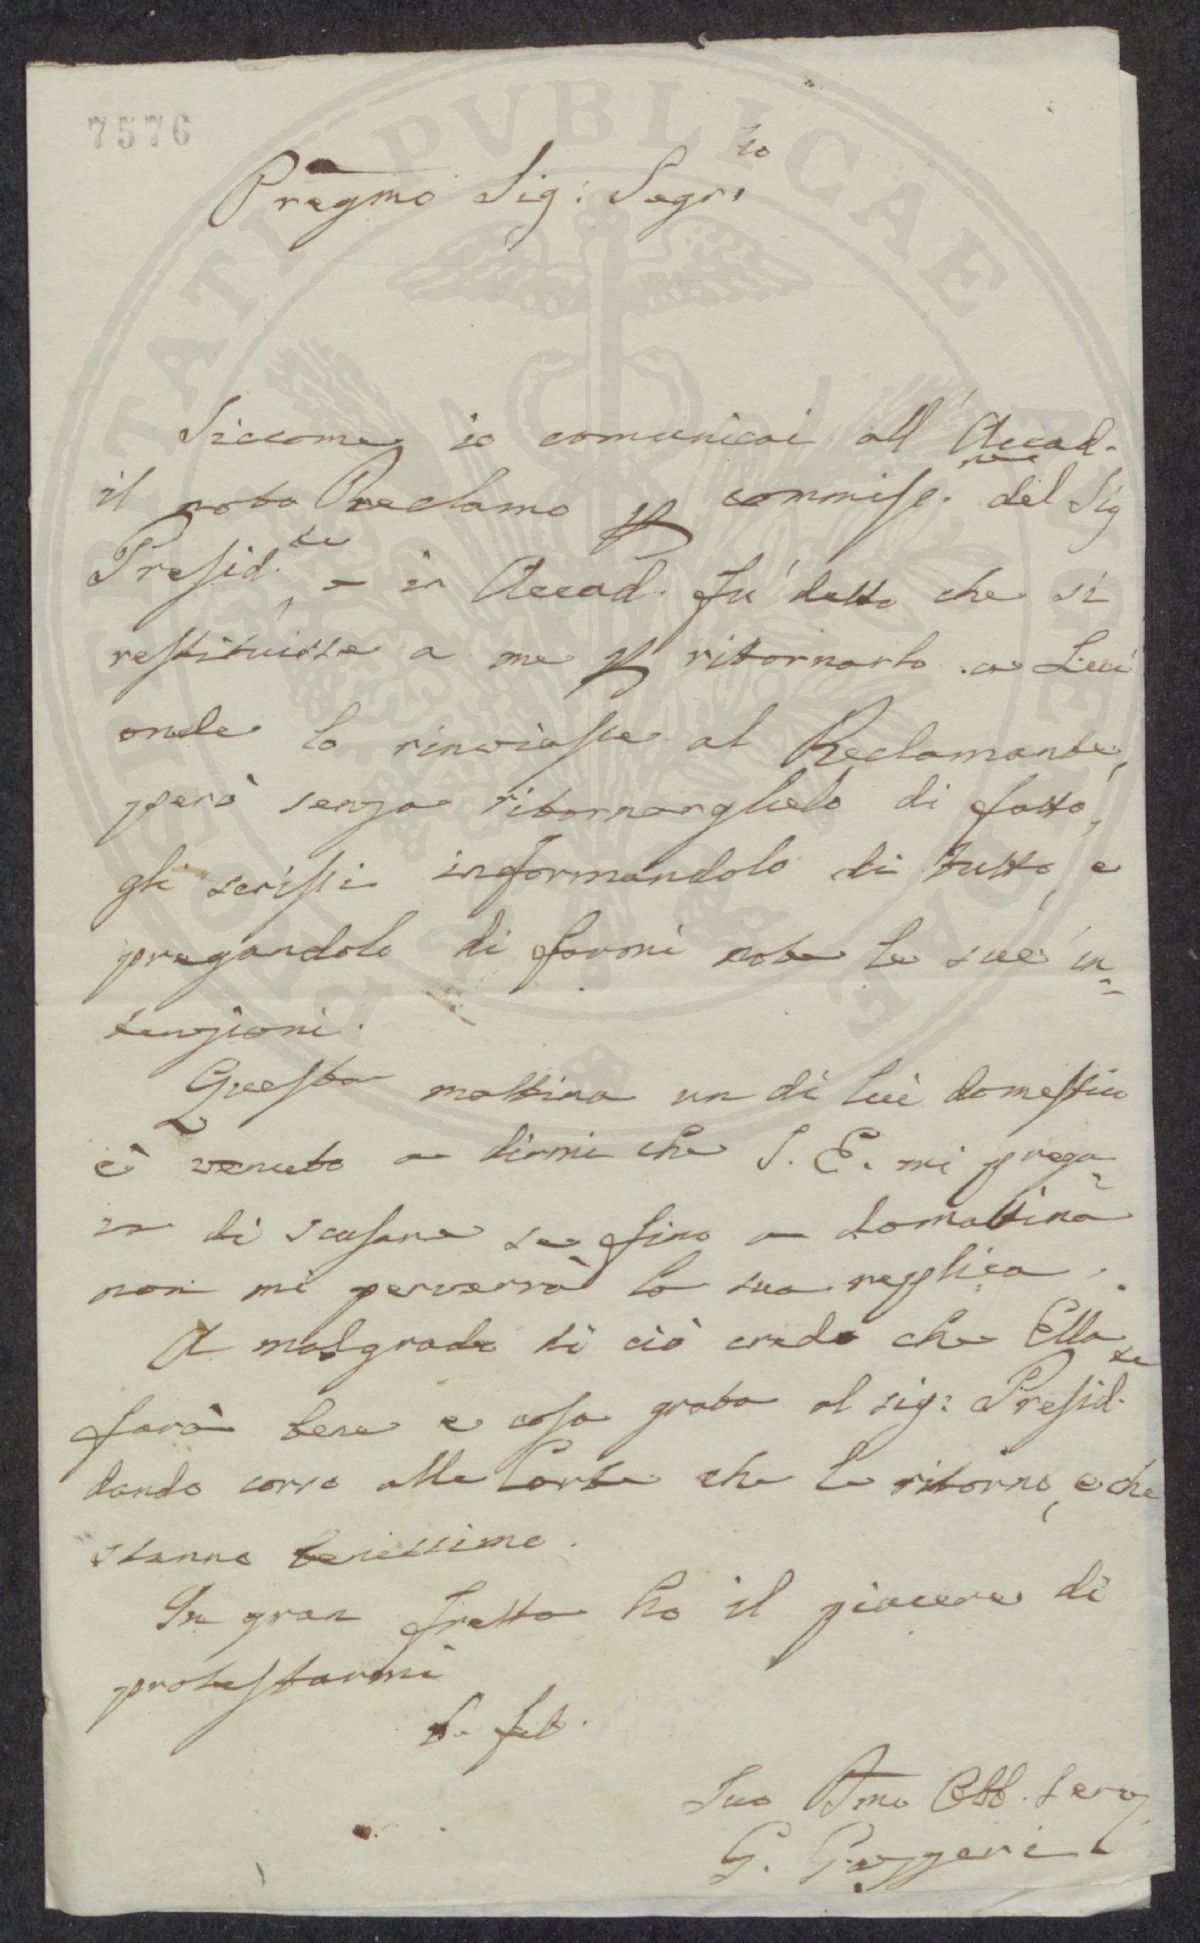 7576
Pregmo Sig: Segr.io
Siccome io comunicai all'Accad.
il noto Reclamo p commiss.ne del Sig
Presid.te, e in Accad. fu detto che si
restituisse a me p ritornarlo a Lei
onde lo rinviasse al Reclamante,
però senza ritornarglielo di fatto,
gli scrissi informandolo di tutto, e
pregandolo di farmi note le sue in-
tenzioni.
Questa mattina un di lui domestico
è venuto a dirmi che S. E. mi prega-
va di scusare se fino a domattina
non mi perverrà la sua replica.
A malgrado di ciò credo che Ella
farà bene e cosa grata al sig: Presid.te
dando corso alle Carte che le ritorno, e che
stanno benissimo.
In gran fretta ho il piacere di
protestarmi
S. feb.
Suo Dmo Obb. Serv.
G. Gazzeri
PVBLICAE